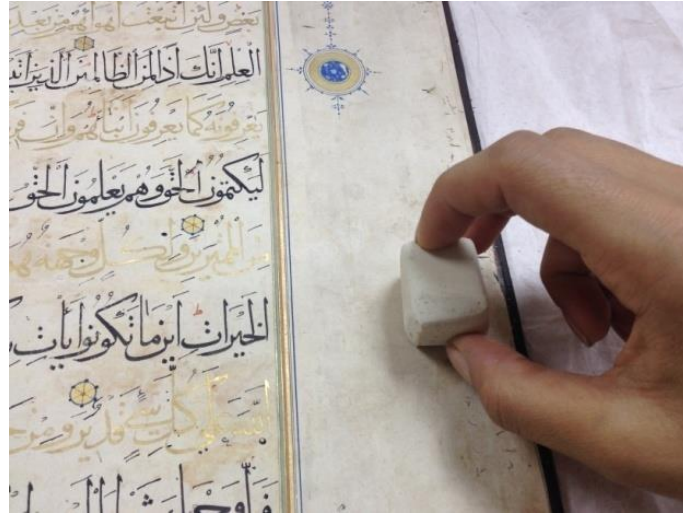 بعض ولئن اتبعت اهواءهم من بعد
العلم انك اذا لمن الظالمين الذين
يعرفونه كما يعرفون ابناءهم وان
ليكتمون الحق وهم يعلمون الحق
من الممترين ولكل وجهة
الخيرات اين ما تكونوا يات
على كل شيء قدير ومن